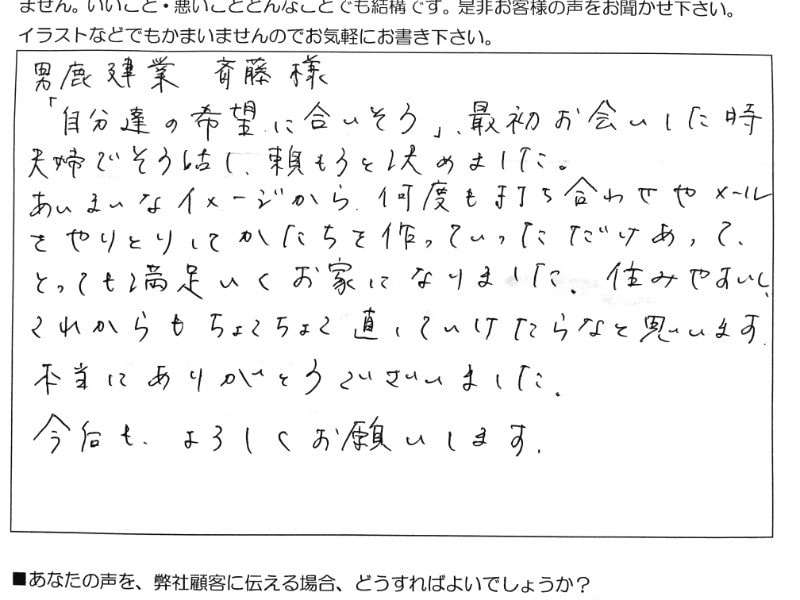 ません。いいこと・悪いことどんなことでも結構です。是非お客様の声をお聞かせ下さい。
イラストなどでもかまいませんのでお気軽にお書き下さい。
男鹿建業 斉藤様
「自分達の希望に合いそう」、最初お会いした時
夫婦でそう話し、頼もうと決めました。
あいまいなイメージから、何度も打ち合わせやメール
をやりとりしてかたちを作っていっただけあって、
とっても満足いくお家になりました。住みやすいし、
これからもちょこちょこ直していけたらなと思います。
本当にありがとうございました。
今后も、よろしくお願いします。
■あなたの声を、弊社顧客に伝える場合、どうすればよいでしょうか?